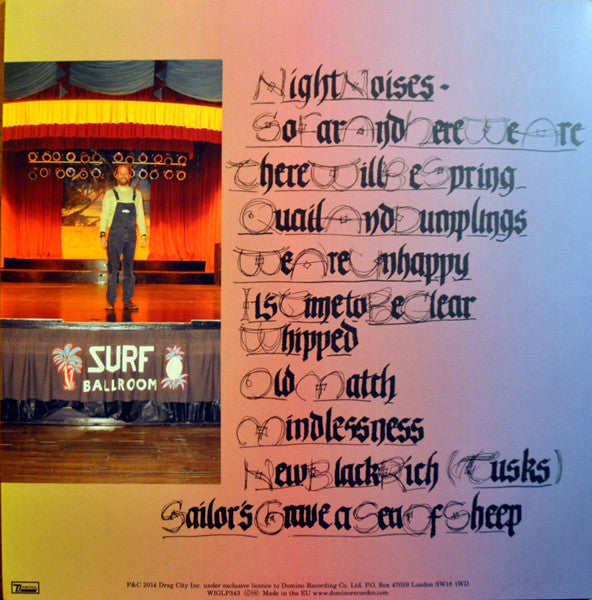 Night Noises -
So Far And Here We Are
There Will Be Spring
Quail And Dumplings
We Are Unhappy
It's Time to Be Clear
Whipped
Old Match
Mindlessness
New Black Rich (Tusks)
Sailor's Grave a Sea Of Sheep
SURF
BALLROOM
Domino
P&C 2014 Drag City Inc. under exclusive licence to Domino Recording Co. Ltd. P.O. Box 47029 London SW18 1WD
WIGLP343 Made in the EU www.dominorecordco.com